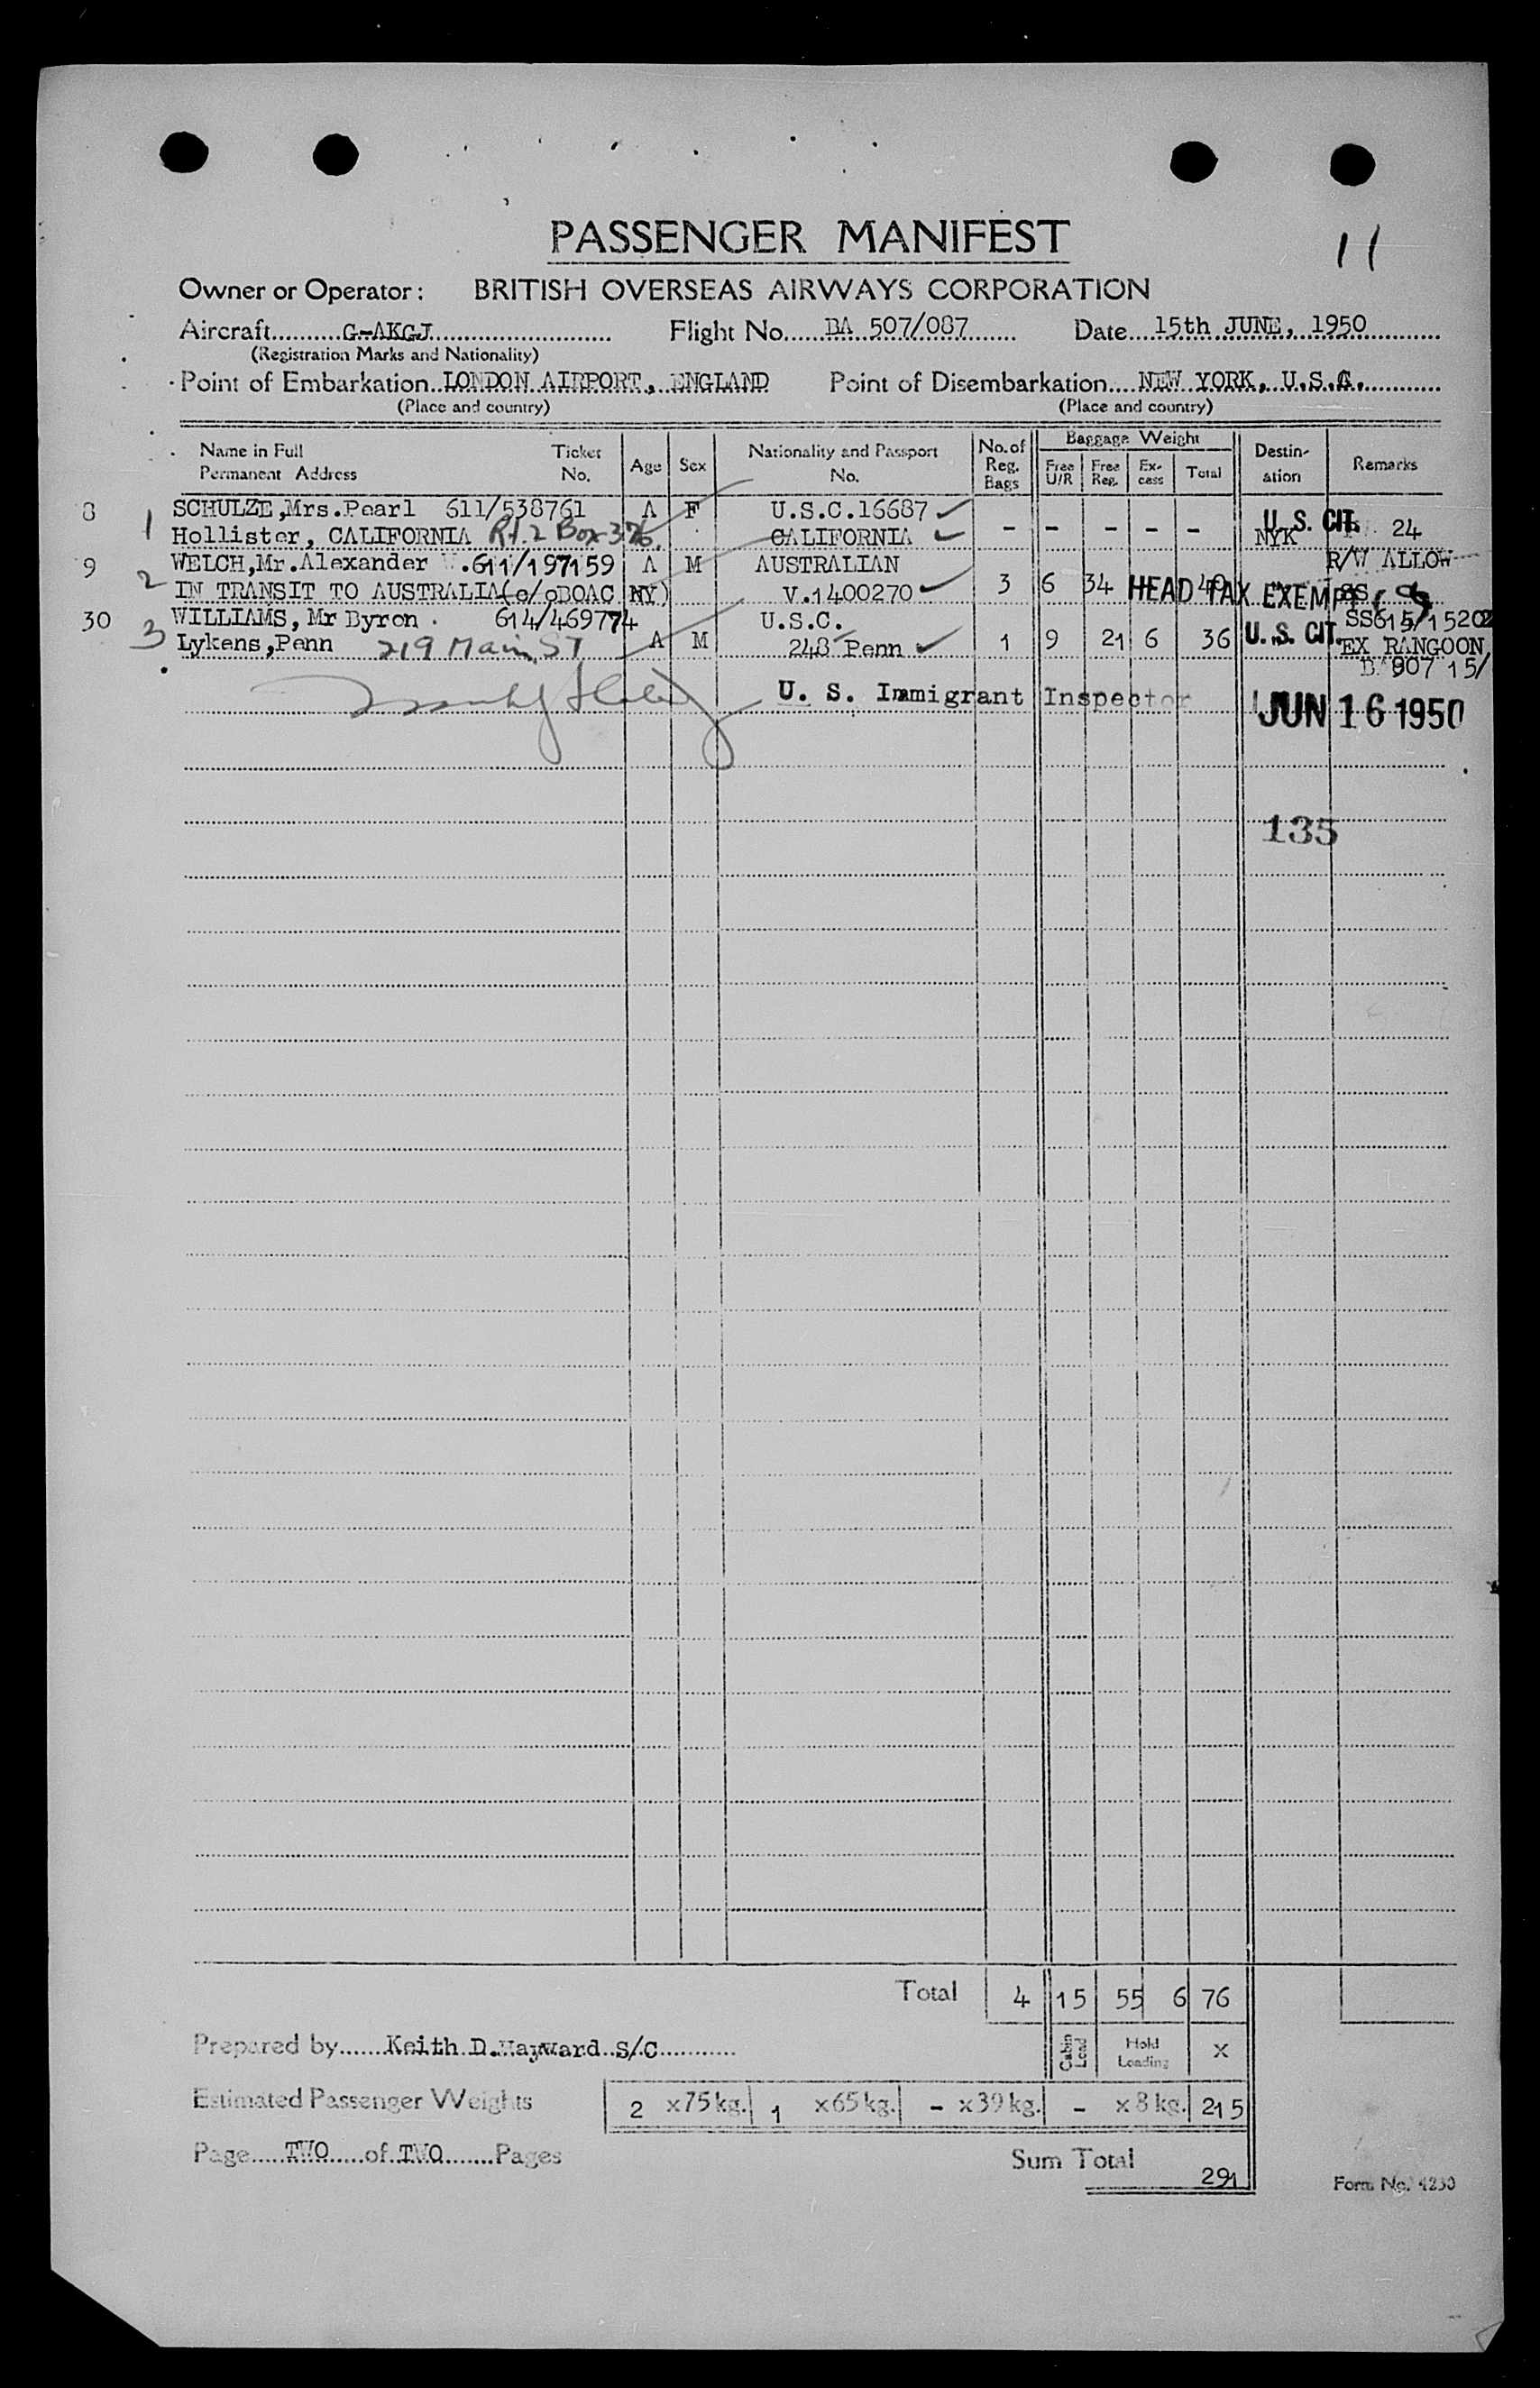 PASSENGER MANIFEST
11
Owner or Operator: BRITISH OVERSEAS AIRWAYS CORPORATION
Aircraft G-AKGJ Flight No. BA 507/087 Date 15th JUNE, 1950
(Registration Marks and Nationality)
Point of Embarkation LONDON AIRPORT, ENGLAND Point of Disembarkation NEW YORK, U.S.A.
(Place and country) (Place and country)
Name in Full Ticket No. Age Sex Nationality and Passport No. No. of Reg. Bags Baggage Weight Destination Remarks
Permanent Address Free U/R Free Reg. Excess Total
8 SCHULZE,Mrs.Pearl 611/538761 A F U.S.C.16687 U. S. CIT.
1 Hollister, CALIFORNIA Rt. 2 Box 376. CALIFORNIA - - - - - NYK 24
9 WELCH,Mr.Alexander .611/197159 A M AUSTRALIAN R/W ALLOW
2 IN TRANSIT TO AUSTRALIA(c/oBOAC NY) V.1400270 3 6 34 40 HEAD TAX EXEMPT
30 WILLIAMS, Mr Byron . 614/469774 U.S.C. SS615/15202
3 Lykens,Penn 219 Main ST A M 248 Penn 1 9 21 6 36 U. S. CIT. EX RANGOON
BA 907 15/
U. S. Immigrant Inspector JUN 16 1950
135
Total 4 15 55 6 76
Prepared by Keith D.Hayward S/C Cabin Load Hold Loading X
Estimated Passenger Weights 2 x75kg. 1 x65kg. - x39kg. - x8kg. 215
Page TWO of TWO Pages Sum Total 291
Form No. 4230